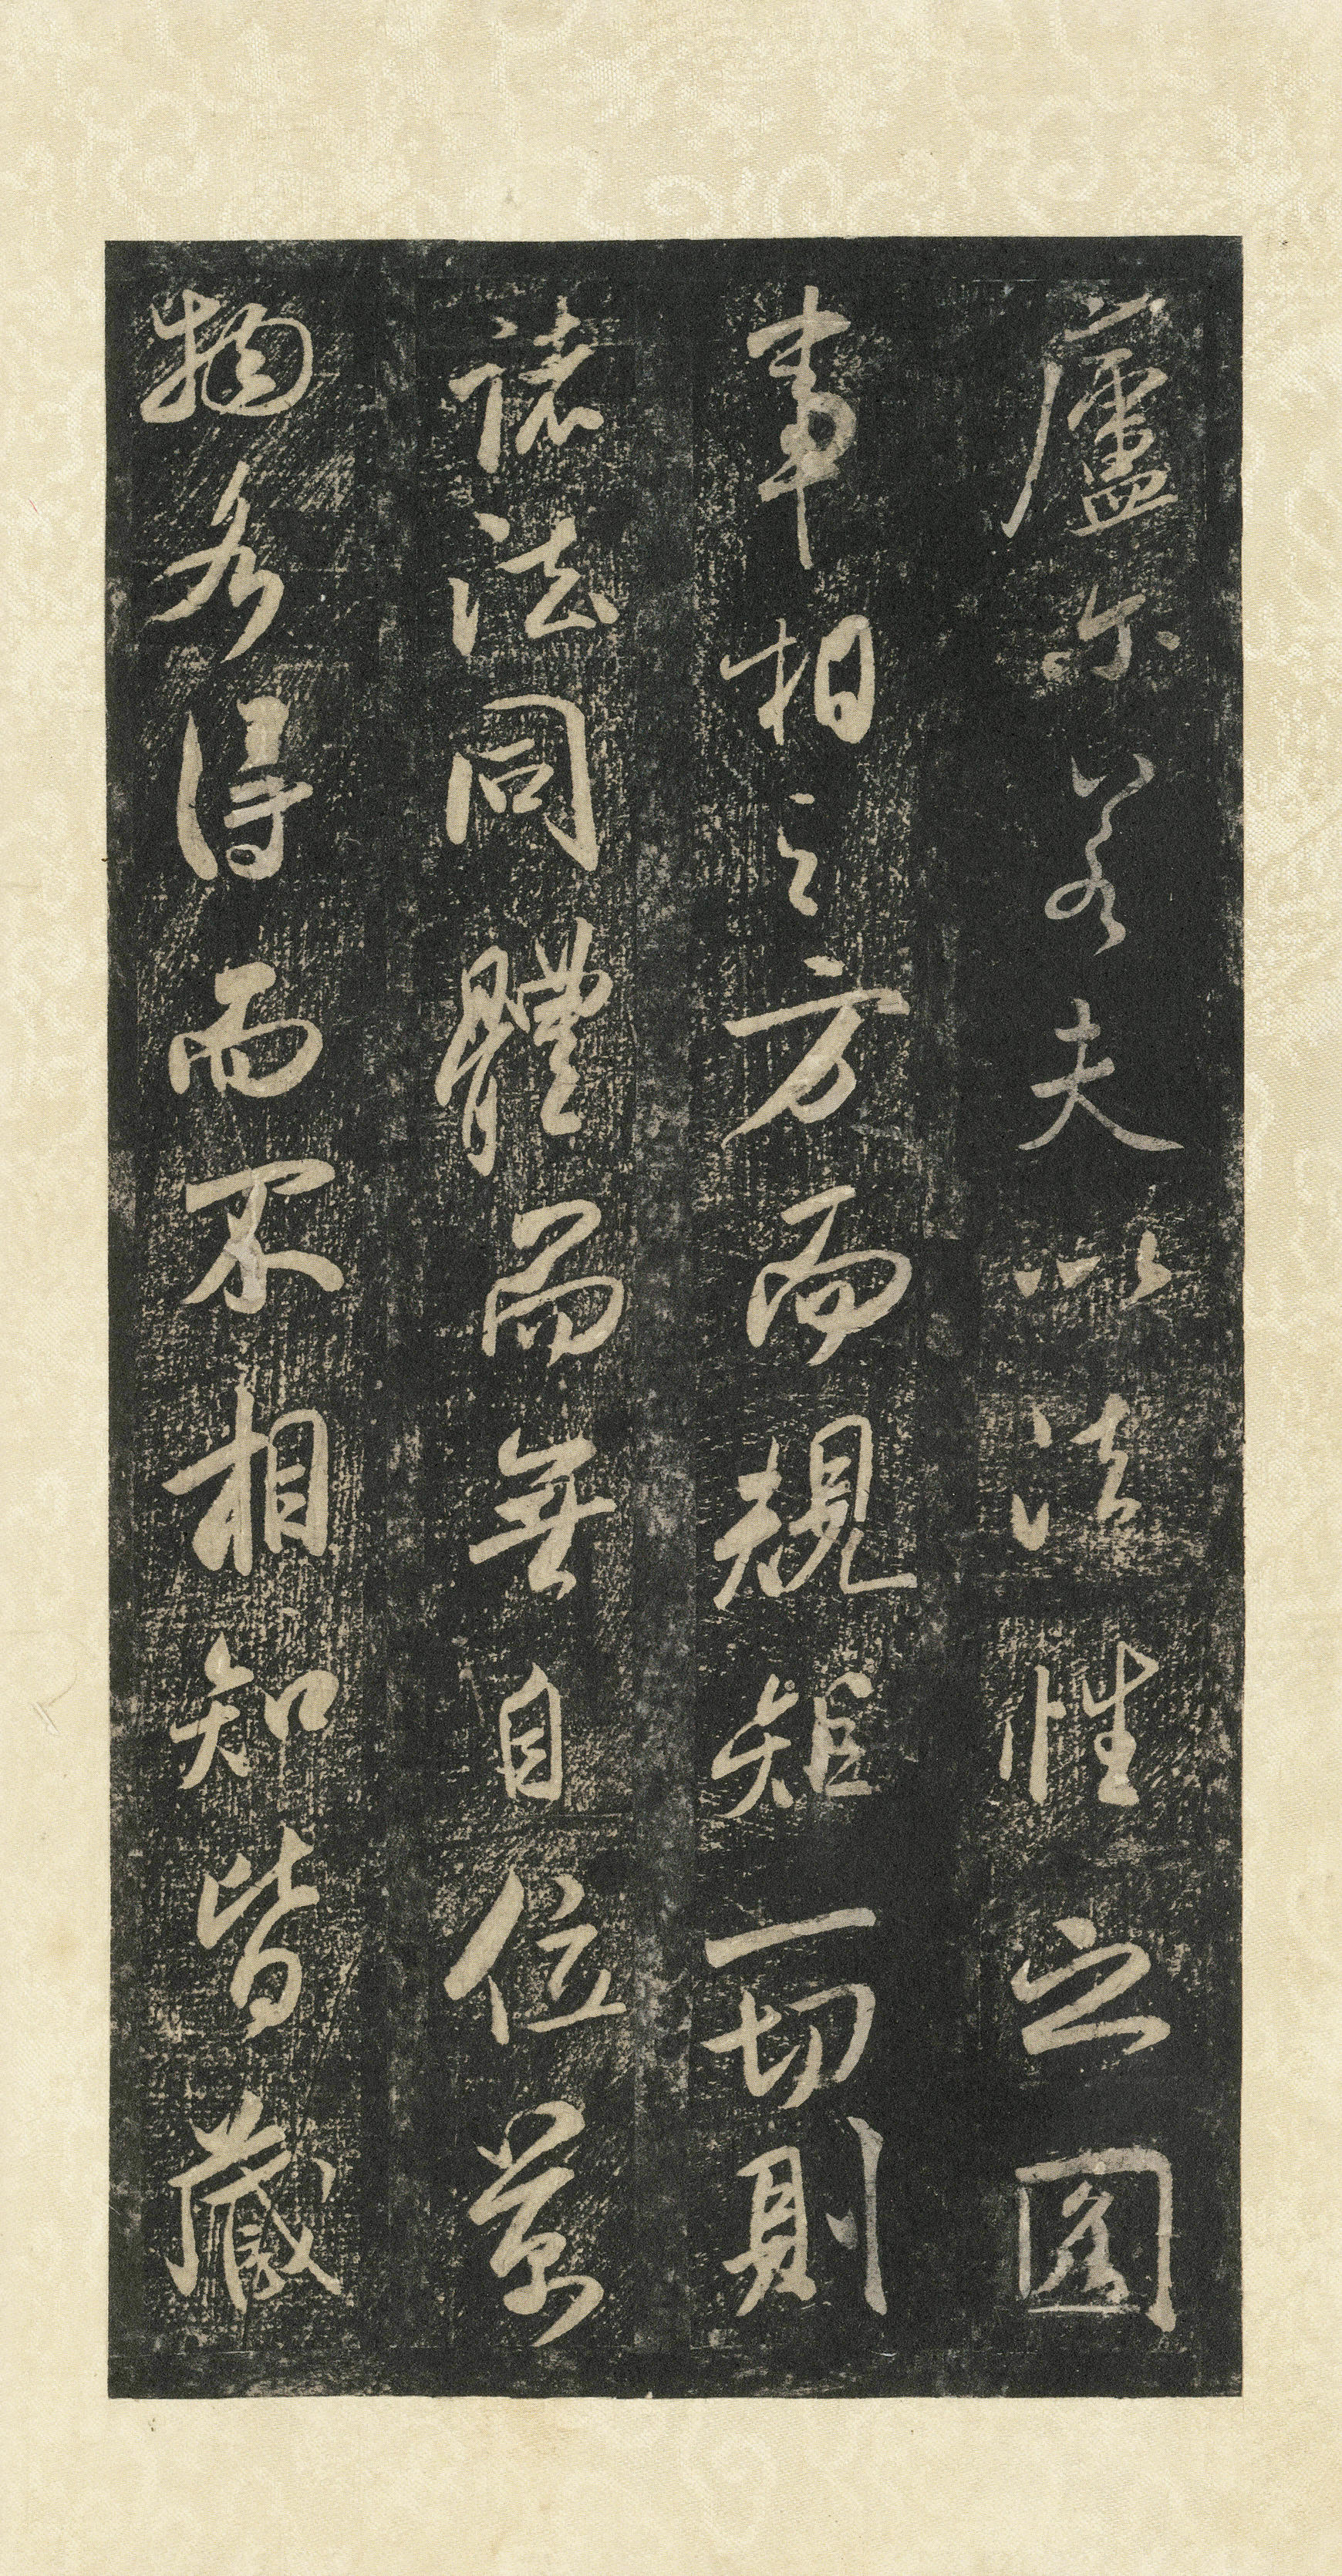 廬尔若夫以法性之圆
事相之方而規矩一切則
諸法同體而無自位萬
物各得而不相知皆藏